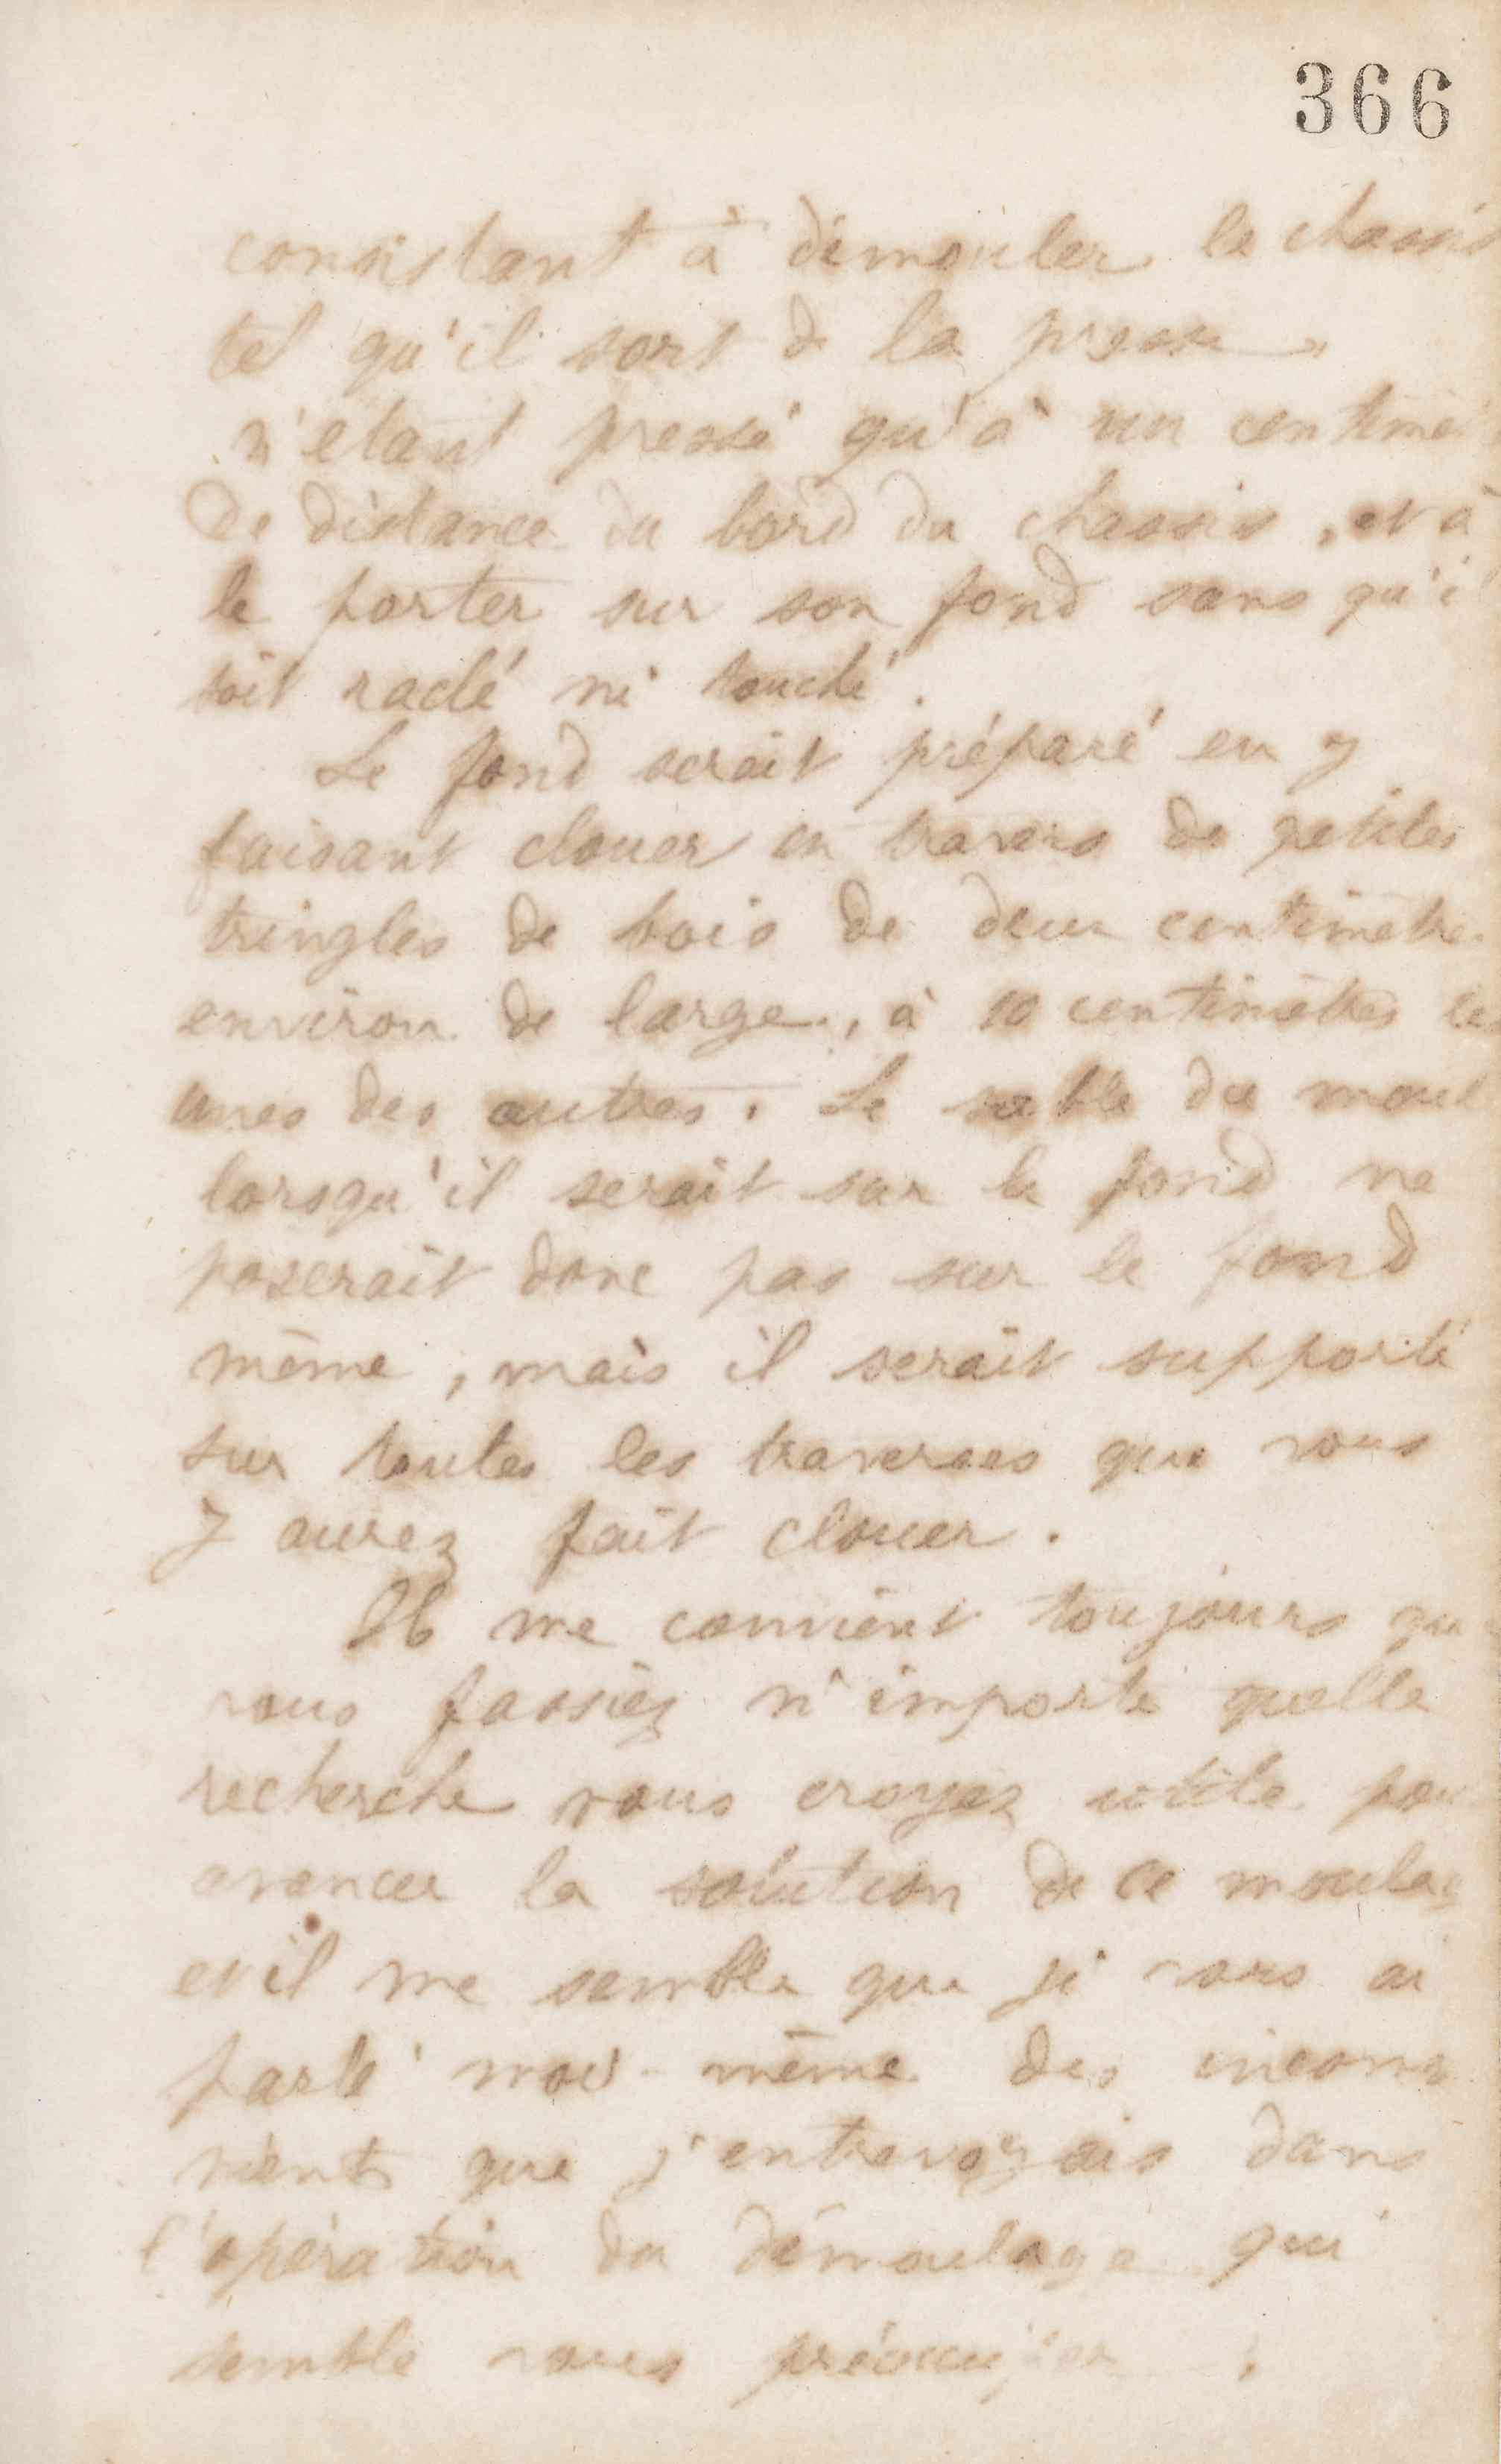 366
consistant à démouler le chassis
tel qu'il sort de la presse,
n'étant pressé qu'à un centimè
de distance du bord du chassis, et à
le porter sur son fond sans qu'i
soit raclé ni touché.
Le fond serait préparé en y
faisant clouer en travers de petites
tringles de bois de deux centimètre
environ de large, à 10 centimètres les
unes des autres. Le sable du moul
lorsqu'il serait sur le fond ne
poserait donc pas sur le fond
même, mais il serait supporté
sur toutes les traverses que vous
y aurez fait clouer.
Il me convient toujours que
vous fassiez n'importe quelle
recherche vous croyez utile pou
avancer la solution de ce moulag
et il me semble que je vous ai
parlé moi-même des inconv
nients que j'entrevoyais dans
l'opération du démoulage qui
semble vous préoccuper.